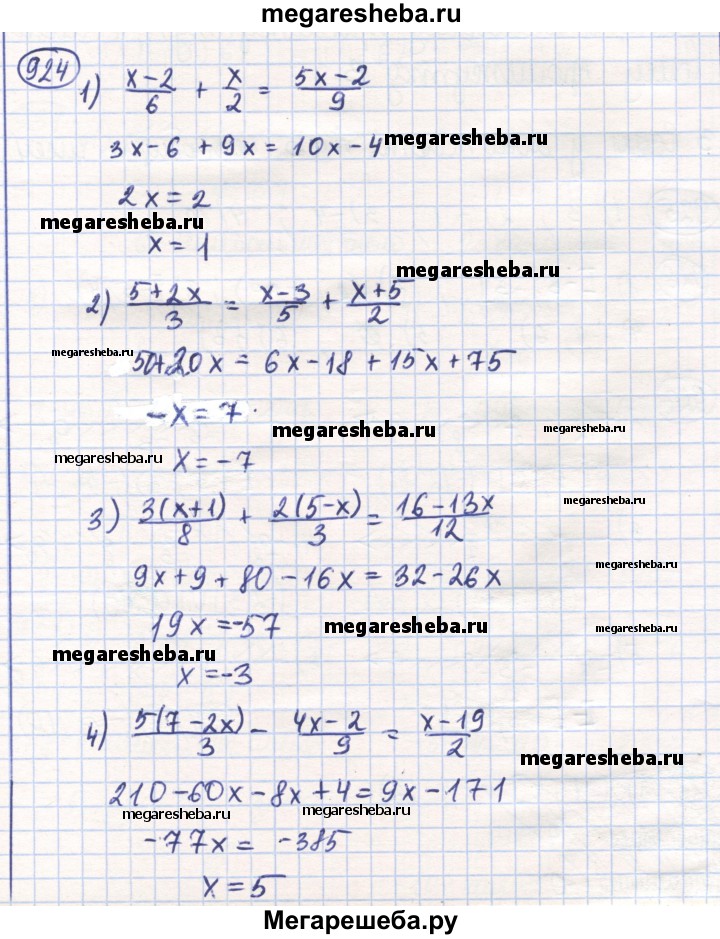 megaresheba.ru
924
1) (x-2)/6 + x/2 = (5x-2)/9
3x-6 + 9x = 10x-4
megaresheba.ru
2x = 2
megaresheba.ru
x = 1
megaresheba.ru
2) (5+2x)/3 = (x-3)/5 + (x+5)/2
megaresheba.ru
50+20x = 6x-18 + 15x + 75
-x = 7
megaresheba.ru
megaresheba.ru
megaresheba.ru
x = -7
3) 3(x+1)/8 + 2(5-x)/3 = (16-13x)/12
megaresheba.ru
9x+9 + 80-16x = 32-26x
megaresheba.ru
19x = -57
megaresheba.ru
megaresheba.ru
megaresheba.ru
x = -3
4) 5(7-2x)/3 - (4x-2)/9 = (x-19)/2
megaresheba.ru
210-60x-8x+4 = 9x-171
megaresheba.ru
megaresheba.ru
-77x = -385
x = 5
Мегарешеба.ру